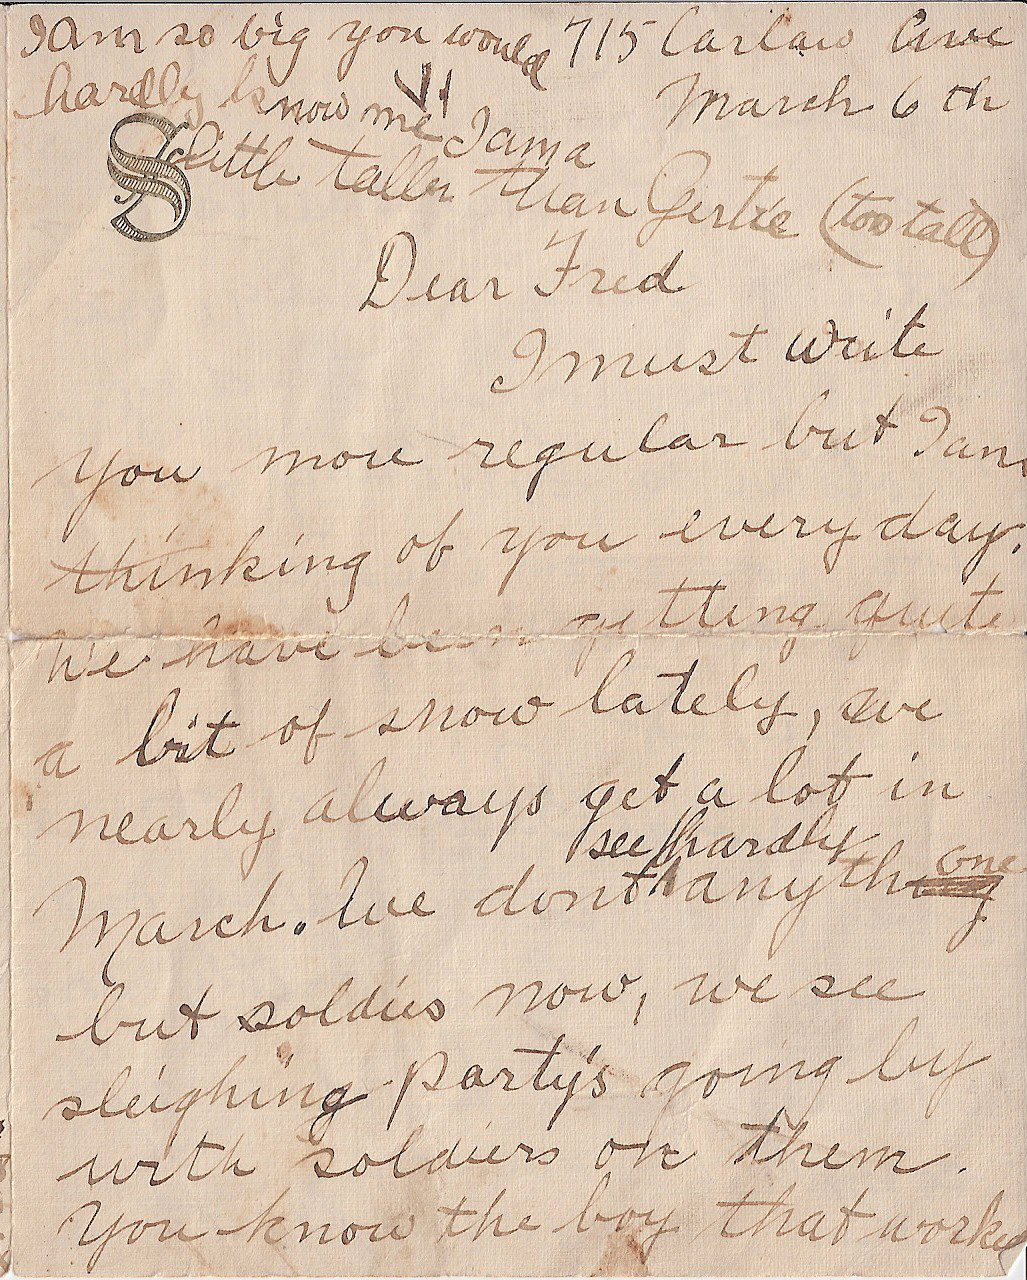 I am so big you would
hardly know me! I am a
little taller than Gertie (too tall)
715 Carlaw Ave
March 6th
S
Dear Fred
I must write
you more regular but I am
thinking of you every day.
We have been getting quite
a bit of snow lately, we
nearly always get a lot in
see hardly one
March. We dont anything
but soldies now, we see
sleighing party's going by
with soldiers on them.
You know the boy that worked